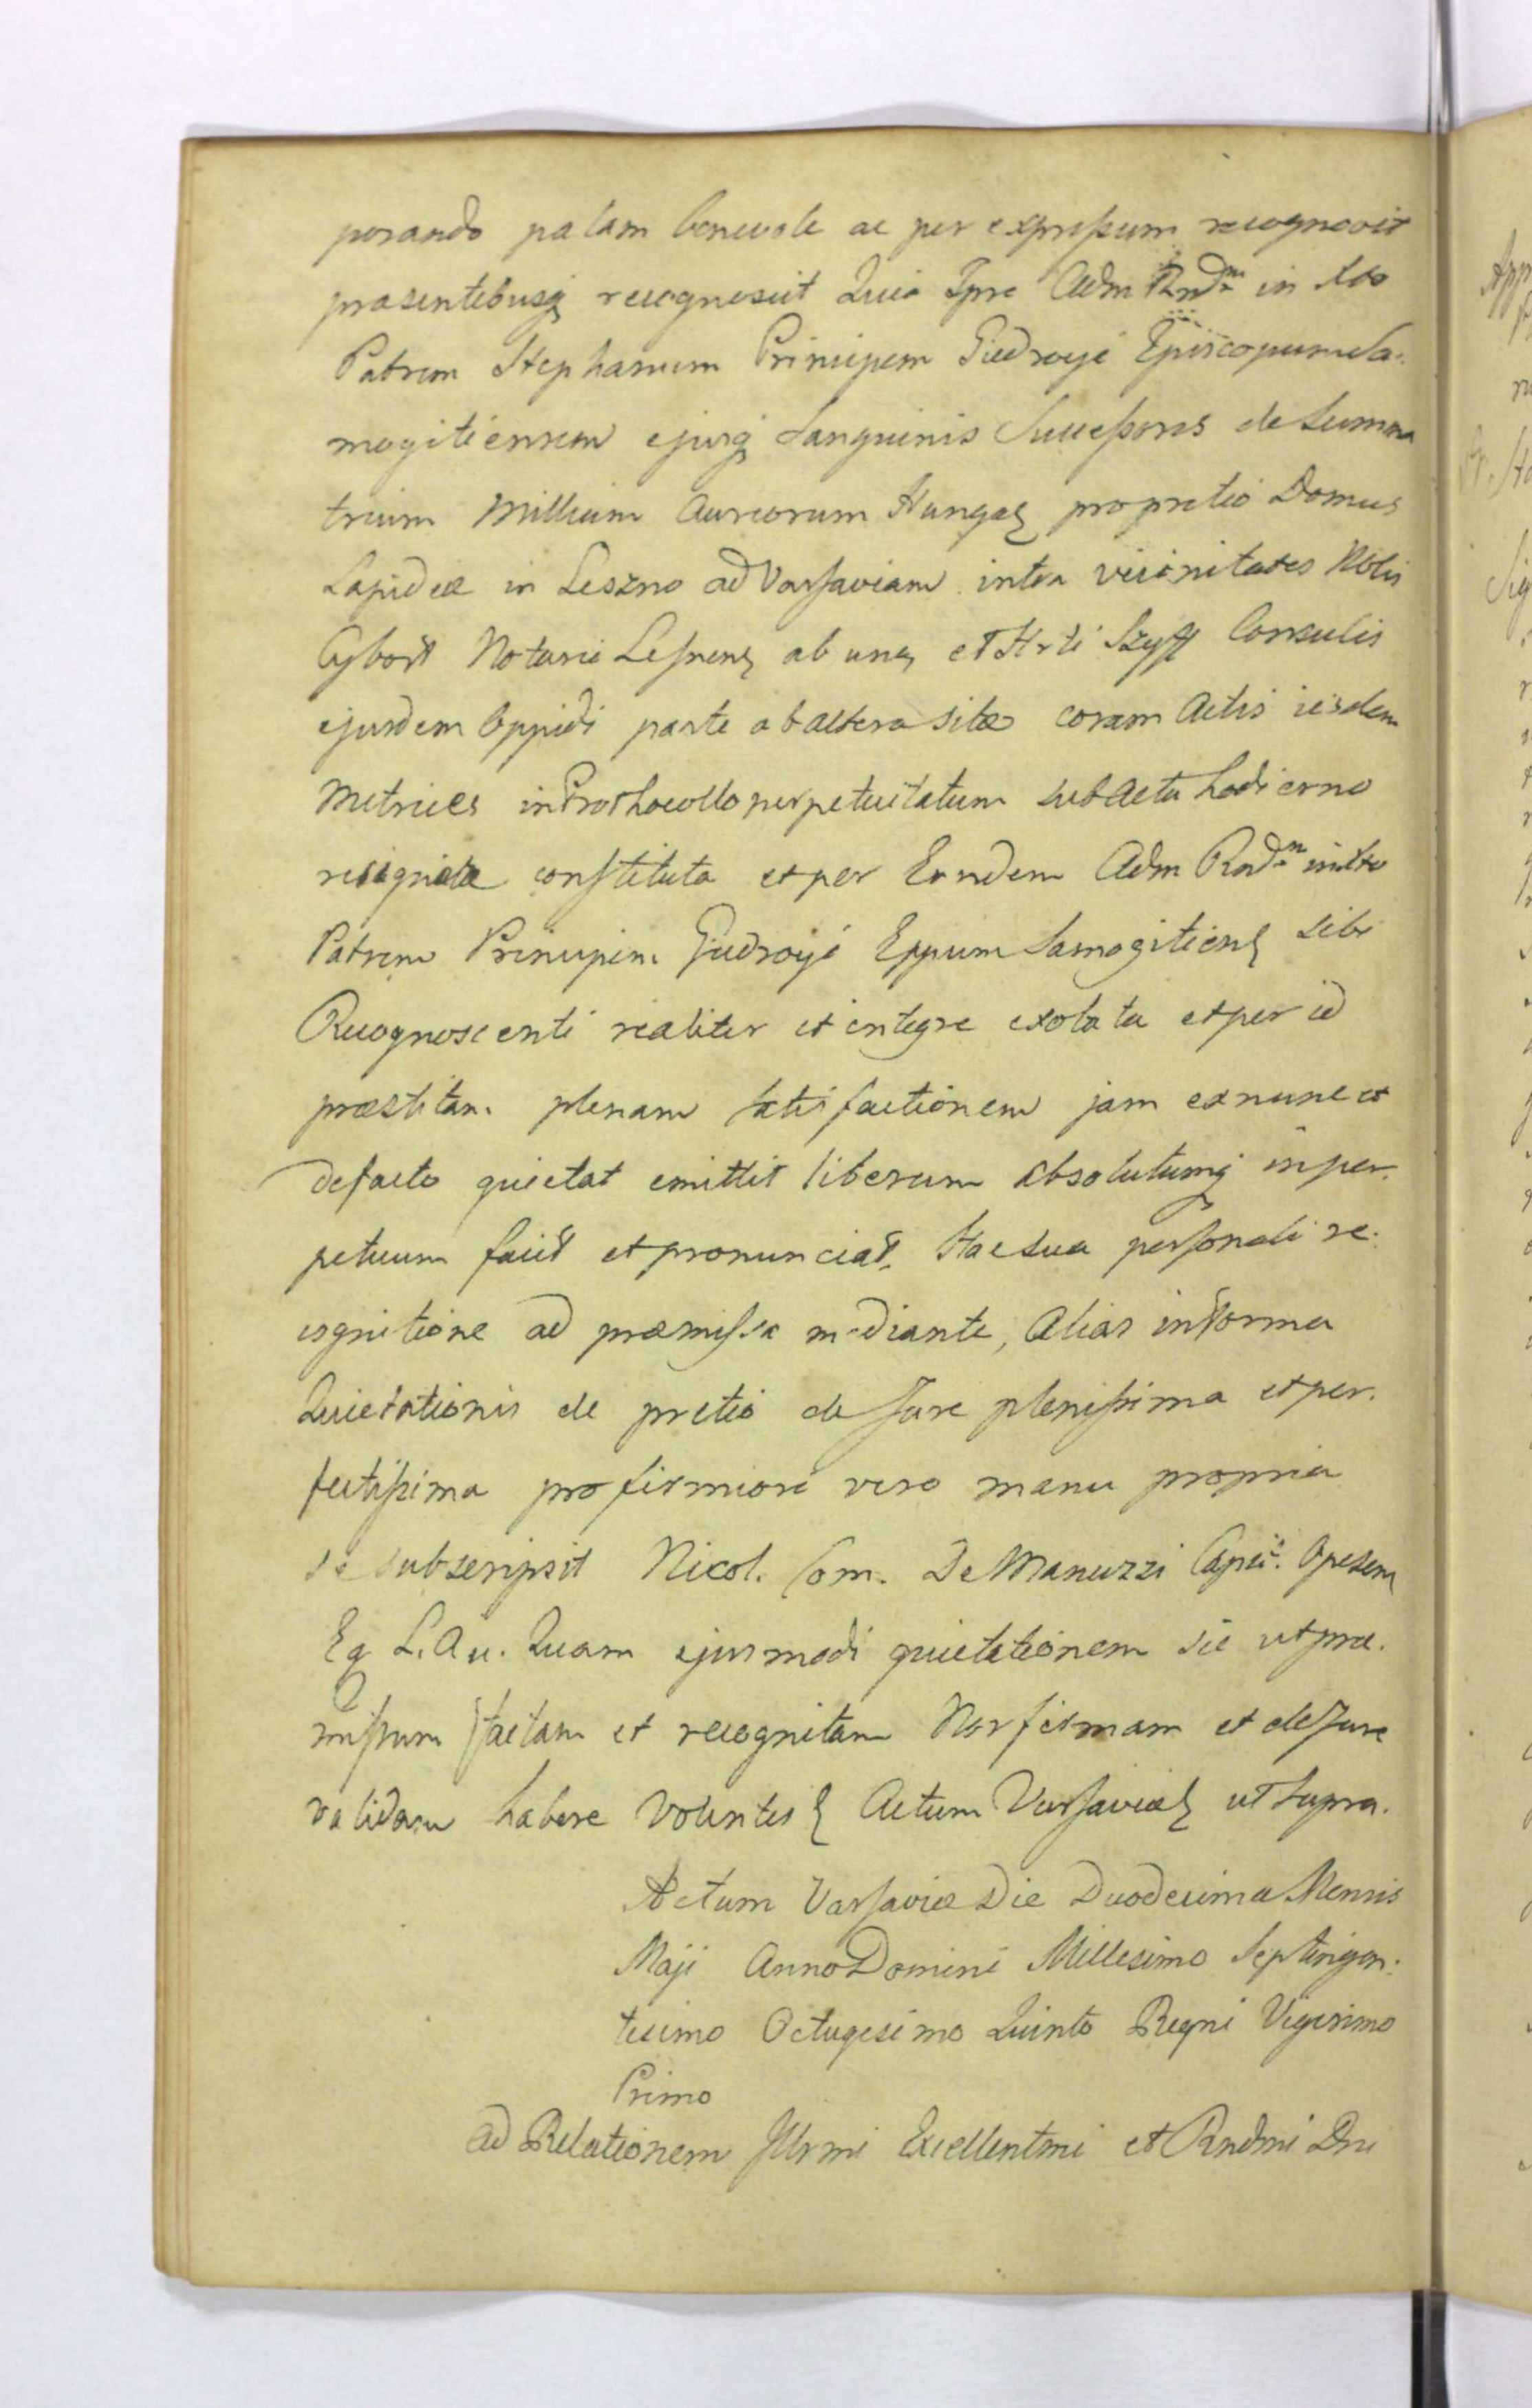 porando palam benevole ac per expressum recognovit
præsentibusq recognoscit Quia Ipse Adm Rndm in Xto
Patrem Stephanum Principem Giedroyć Episcopum Sa-
mogitiensem ejusq Sanguinis Successores de Summa
trium Millium Aureorum Hungar pro pretio Domus
Lapideæ in Leszno ad Varsaviam intra vicinitates Nobis
Cybort Notarii Lesnens ab una et Hrti Szyff Consulis
ejusdem Oppidi parte ab altera sitæ coram Actis iisdem
Metrices in Prothocollo perpetuitatum sub Actu hodierno
resignatæ constituta et per Eundem Adm Rndm in Xto
Patrem Principem Giedroyć Eppum Samogitiens sibi
Recognoscenti realiter et integre exoluta et per id
præstitam plenam satisfactionem jam ex nunc et
de facto quietat emittit liberum absolutumq in per-
petuum facit et pronunciat, Hac sua personali re-
cognitione ad præmissa mediante, Alias in forma
Quietationis de pretio de Jure plenissima et per-
fectissima pro firmiori vero manu propria
se subscripsit Nicol. Com. De Manuzzi Capit. Opesens
Eq L. Au. Quam ejusmodi quietationem sic ut præ-
missum factam et recognitam Nos firmam et de Jure
validam habere Volentes Actum Varsaviæ ut supra.
Actum Varsaviæ Die Duodecima Mensis
Maji Anno Domini Millesimo Septingen-
tesimo Octugesimo Quinto Regni Vigesimo
Primo
ad Relationem Illrmi Excellentmi et Rndmi Dni